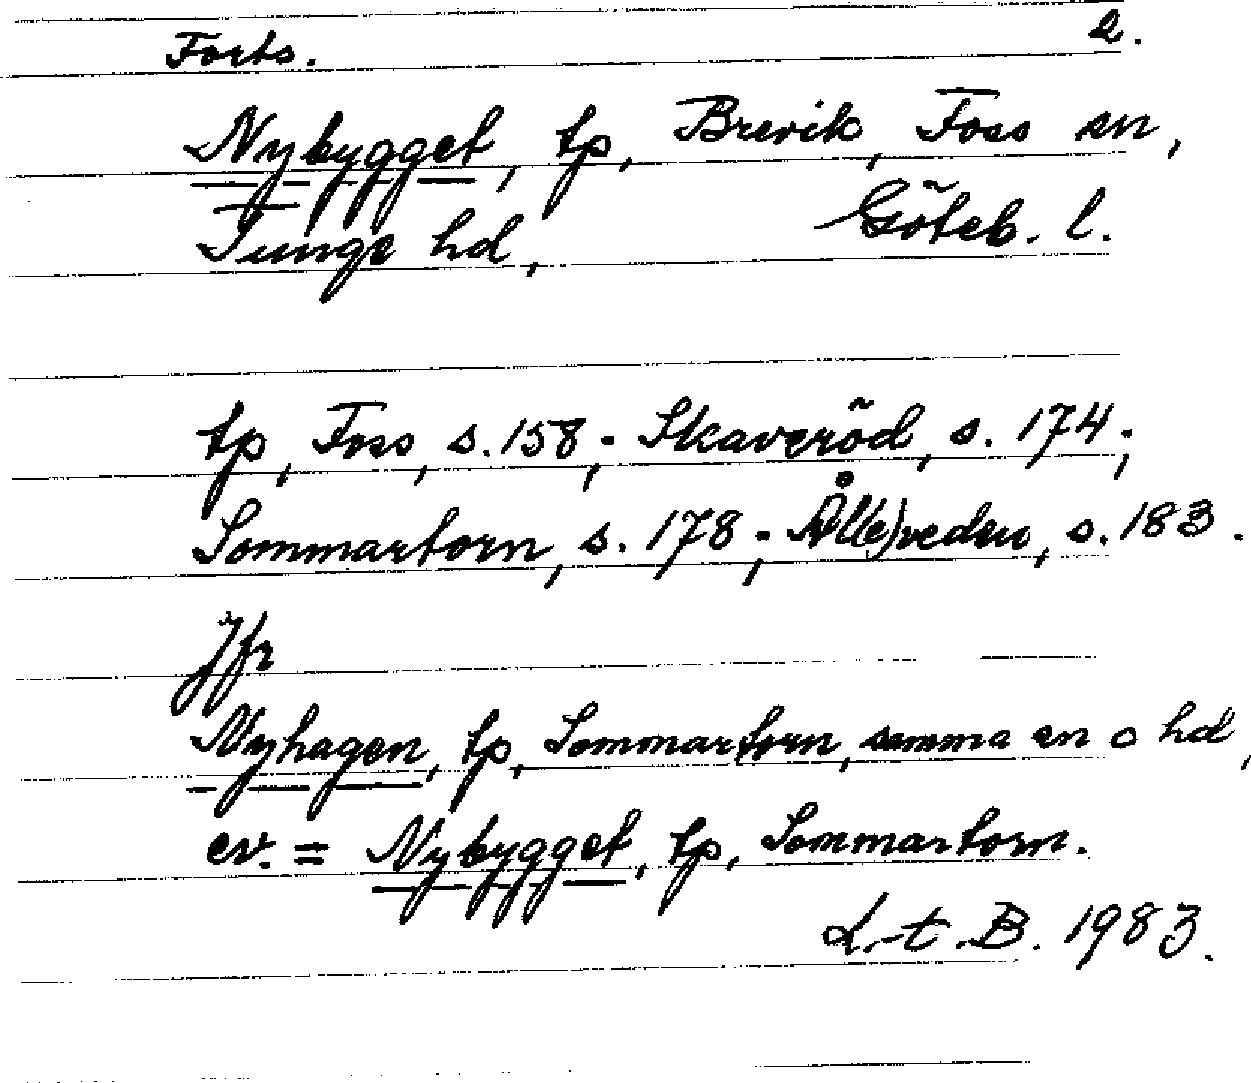 Forts. 2.
Nybygget, tp, Brevik, Foss sn,
Tunge hd, Göteb. l.
tp, Foss, s. 158; Skaveröd, s. 174;
Sommartorn, s. 178; Åll(e)veden, s. 183.
Jfr
Nyhagen, tp, Sommartorn, samma sn o hd,
ev. = Nybygget, tp, Sommartorn.
L.-t. B. 1983.